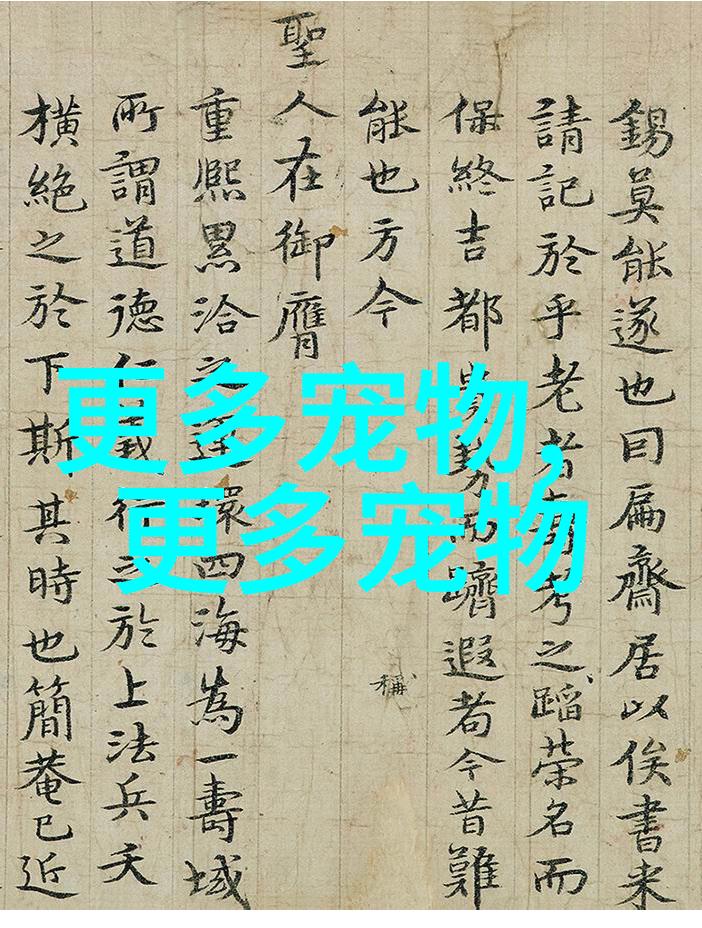 錫莫能遂也曰扁齋居以俟書来
請記於乎老者考之蹈榮名而
保終吉都勢而躋遐者今昔難
能也方今
稱
聖人在御膺
重熙累洽之運環四海為一壽域
所謂道德仁義行之於上法兵夭
横絶之於下斯其時也簡菴已近
更多宠物,
更多宠物